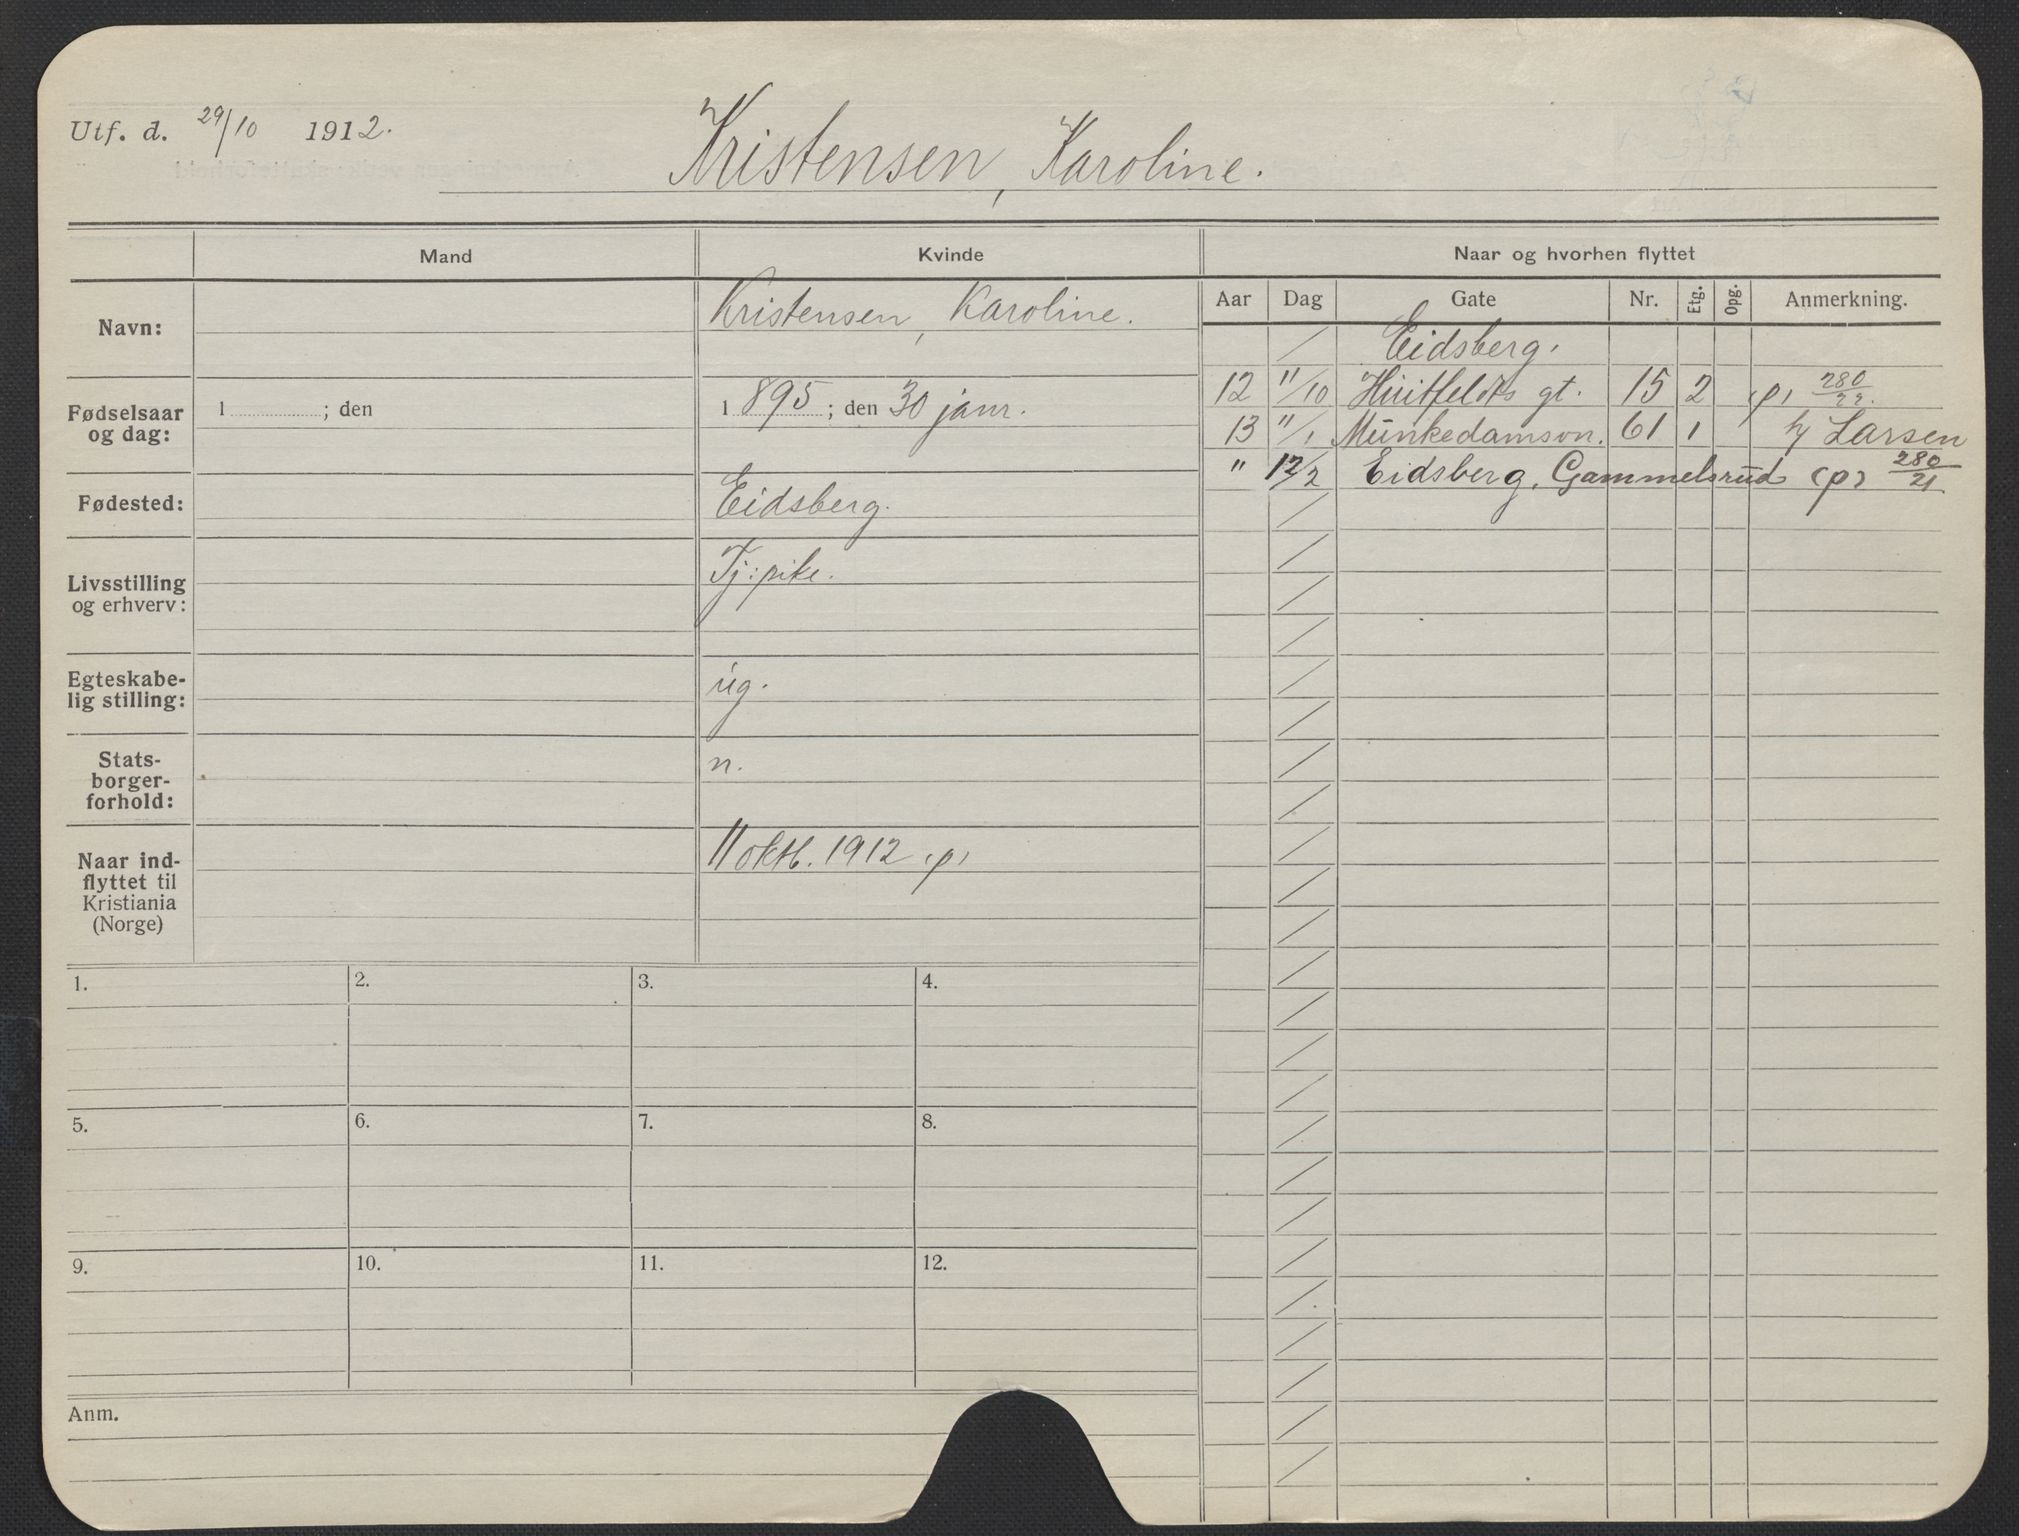 Utf. d. 29/10 1912.
Kristensen, Karoline.
Mand
Kvinde
Naar og hvorhen flyttet
Navn:
Kristensen, Karoline.
Fødselsaar og dag:
1 ; den
1 895 ; den 30 janr.
Fødested:
Eidsberg.
Livsstilling og erhverv:
Tj: pike.
Egteskabe-
lig stilling:
ug.
Stats-
borger-
forhold:
n.
Naar ind-
flyttet til
Kristiania
(Norge)
11 oktb. 1912 (p)
Aar Dag Gate Nr. Etg. Opg. Anmerkning.
/ Eidsberg.
12 11/10 Huitfeldts gt. 15 2 (p) 280/22.
13 11/1 Munkedamsvn. 61 1 h/ Larsen
" 12/2 Eidsberg, Gammelsrud (p) 280/21
1. 2. 3. 4.
5. 6. 7. 8.
9. 10. 11. 12.
Anm.